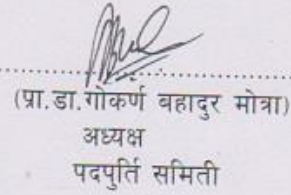 (प्रा.डा.गोकर्ण बहादुर मोत्रा)
अध्यक्ष
पदपुर्ति समिती